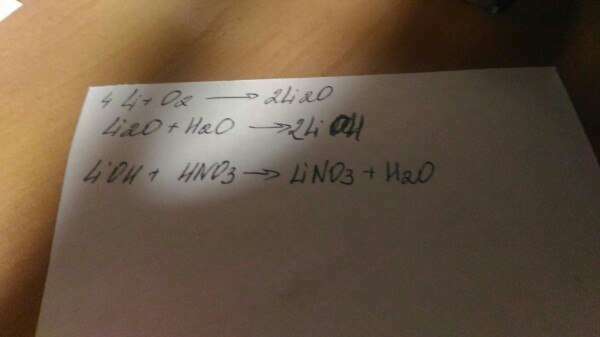 4 Li + O2 → 2Li2O
Li2O + H2O → 2LiOH
LiOH + HNO3 → LiNO3 + H2O